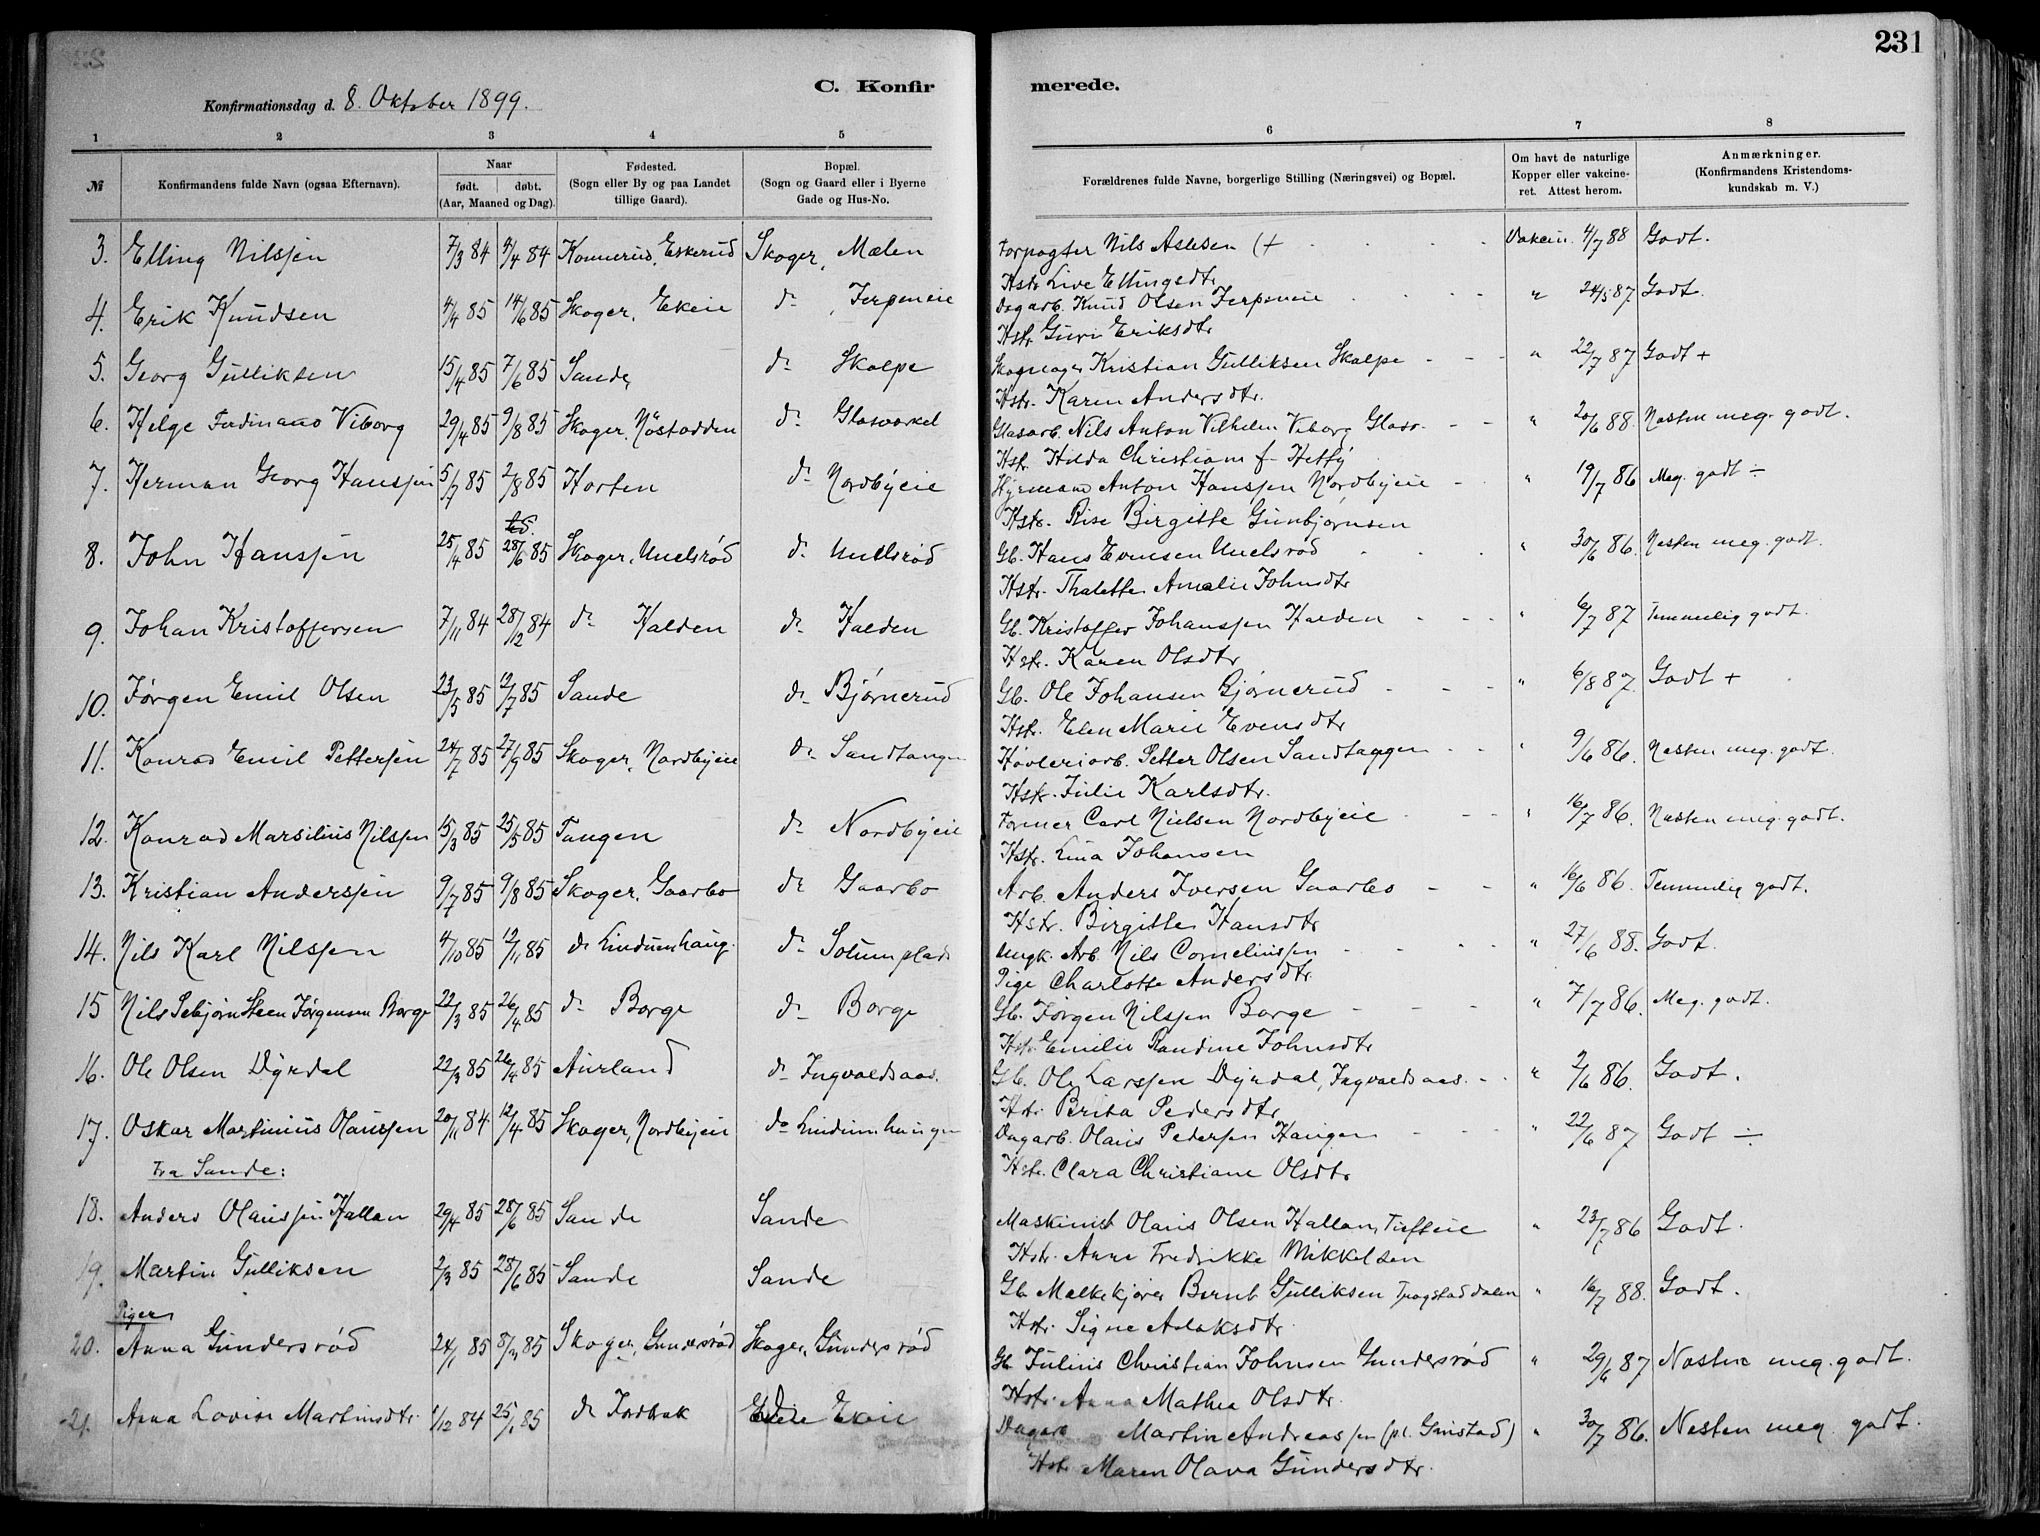 231
C. Konfirmerede.
Konfirmationsdag d. 8. Oktober 1899.
1 2 3 4 5 6 7 8
№ Konfirmandens fulde Navn (ogsaa Efternavn). Naar født. døbt. (Aar, Maaned og Dag). Fødested. (Sogn eller By og paa Landet tillige Gaard). Bopæl. (Sogn og Gaard eller i Byerne Gade og Hus-No. Forældrenes fulde Navne, borgerlige Stilling (Næringsvei) og Bopæl. Om havt de naturlige Kopper eller vakcineret. Attest herom. Anmærkninger. (Konfirmandens Kristendomskundskab m. V.)
3. Elling Nilssen 7/3 84 /4 84 Konnerud, Eskerud Skoger, Mælen Forpagter Nils Aslesen (+ Vakcin. 4/7 88 Godt.
Hstr Live Ellingsdtr
4. Erik Knudsen 4/4 85 14/6 85 Skoger, Ekeie do Jerpeneie Dagarb. Knud Olsen Jerpeneie " 24/5 87 Godt.
Hstr Guri Eriksdtr
5. Georg Gulliksen 15/4 85 7/6 85 Sande, do Skalpe Kristian Gulliksen Skalpe " 22/7 87 Godt +
Hstr. Karen Andersdtr.
6. Helge Ferdinand Viborg 29/4 85 9/8 85 Skoger, Nöstodden do Glasværket Glasarb. Nils Anton Vilhelm Viborg Glasv. " 20/6 88. Næsten meg. godt.
Hstr. Hilda Christiane f. Hetty
7. Herman Georg Hanssen 5/7 85 2/8 85 Horten do Nordbyeie Hyrmand Anton Hanssen Nordbyeie " 19/7 86 Meg. godt ÷
Hstr. Rise Birgitte Gunbjørnsen
8. John Hanssen 25/4 85 28/6 85 Skoger, Unelsrød do Unelsrød Gb. Hans Evensen Unelsrød " 30/6 86. Næsten meg. godt.
Hstr. Thalette Amalie Johnsdtr
9. Johan Kristoffersen 7/11 84 28/12 84 do Halden do Halden Gb. Kristoffer Johanssen Halden " 6/7 87 Temmelig godt.
Hstr. Karen Olsdtr
10. Jørgen Emil Olsen 23/5 85 12/7 85 Sande do Bjørnerud Gb. Ole Johansen Bjørnerud " 6/8 87. Godt +
Hstr. Elen Marie Evensdtr
11. Konrad Emil Pettersen 24/7 85 27/9 85 Skoger, Nordbyeie do Sandtangen Høvleriarb. Petter Olsen Sandtangen " 9/6 86. Næsten meg. godt.
Hstr. Julie Karlsdtr.
12. Konrad Marsilius Nilssen 15/3 85 25/5 85 Tangen do Nordbyeie Former Carl Nielsen Nordbyeie " 16/7 86. Næsten meg. godt.
Hstr. Lina Johansen
13. Kristian Anderssen 9/7 85 9/8 85 Skoger, Gaarbo do Gaarbo Arb. Anders Iversen Gaarbo " 16/6 86. Temmelig godt.
Hstr. Birgitte Hansdtr
14. Nils Karl Nilssen 4/10 85 12/11 85 do Lindumhaug. do Solumplads Ungk. Arb. Nils Corneliussen " 27/6 88. Godt.
Pige Charlotte Andersdtr.
15 Nils Sebjørn Steen Jørgensen Borge 22/3 85 26/4 85 do Borge do Borge Gb. Jørgen Nilssen Borge " 7/7 86. Meg. godt.
Hstr Emilie Randine Johnsdtr
16. Ole Olsen Dyrdal 22/3 85 26/4 85 Aurland do Ingvaldsaas. Gb. Ole Larssen Dyrdal, Ingvaldsaas. " 2/6 86. Godt.
Hstr. Brita Pedersdtr
17. Oskar Martinius Olaussen 20/11 84 12/4 85 Skoger, Nordbyeie do Lindumhaugen Dagarb. Olaus Pedersen Haugen " 22/6 87 Godt ÷
Hstr. Clara Christiane Olsdtr
Fra Sande:
18. Anders Olaussen Hallan 29/4 85 28/6 85 Sande Sande Maskinist Olaus Olsen Hallan, Tufteie " 23/7 86 Godt.
Hstr. Anne Fredrikke Mikkelsen
19. Martin Gulliksen 2/3 85 28/6 85 Sande Sande Gb. Mælkekjører Bernt Gulliksen Trogstaddalen " 16/7 88. Godt.
Hstr. Signe Aslaksdtr.
Piger
20. Anna Gundersrød 24/1 85 8/3 85 Skoger, Gundersrød Skoger, Gundersrød Gb. Julius Christian Johnsen Gundersrød " 29/6 87 Næsten meg. godt.
Hstr. Anna Mathea Olsdtr.
21. Anna Lovise Martinsdtr. 1/12 84 25/1 85 do Jordbæk Ekeie Dagarb Martin Andreassen (pl. Grinstad) " 30/7 86. Nesten meg. godt.
Hstr Maren Olava Gundersdtr.